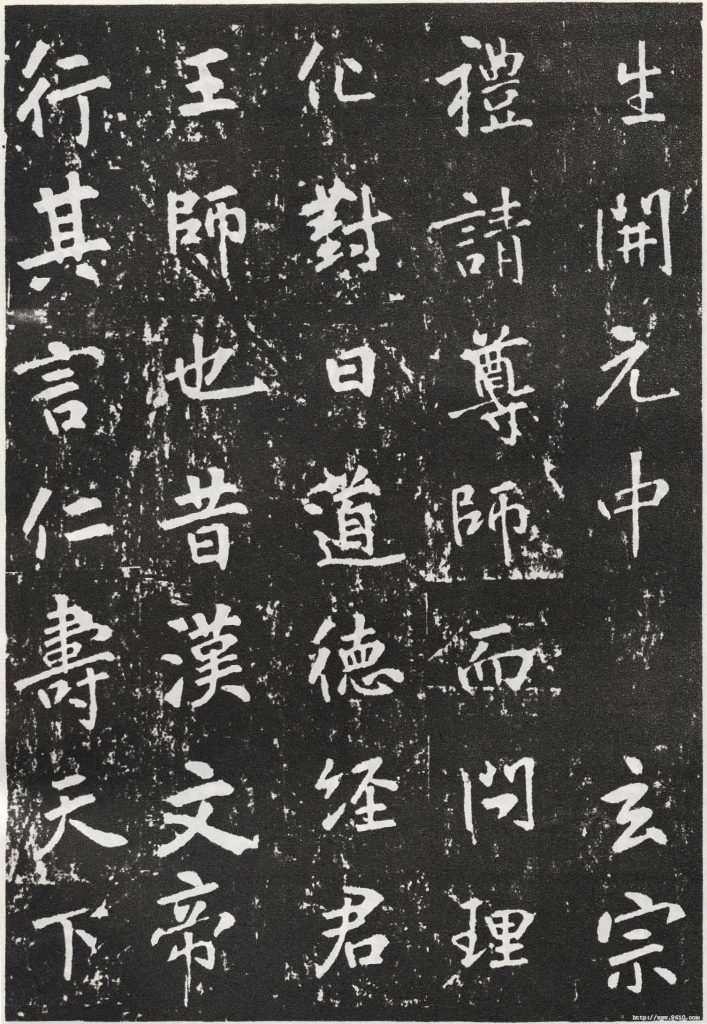 生開元中　玄宗
禮請尊師而問理
化對曰道德经君
王師也昔漢文帝
行其言仁壽天下
http://www.9610.com